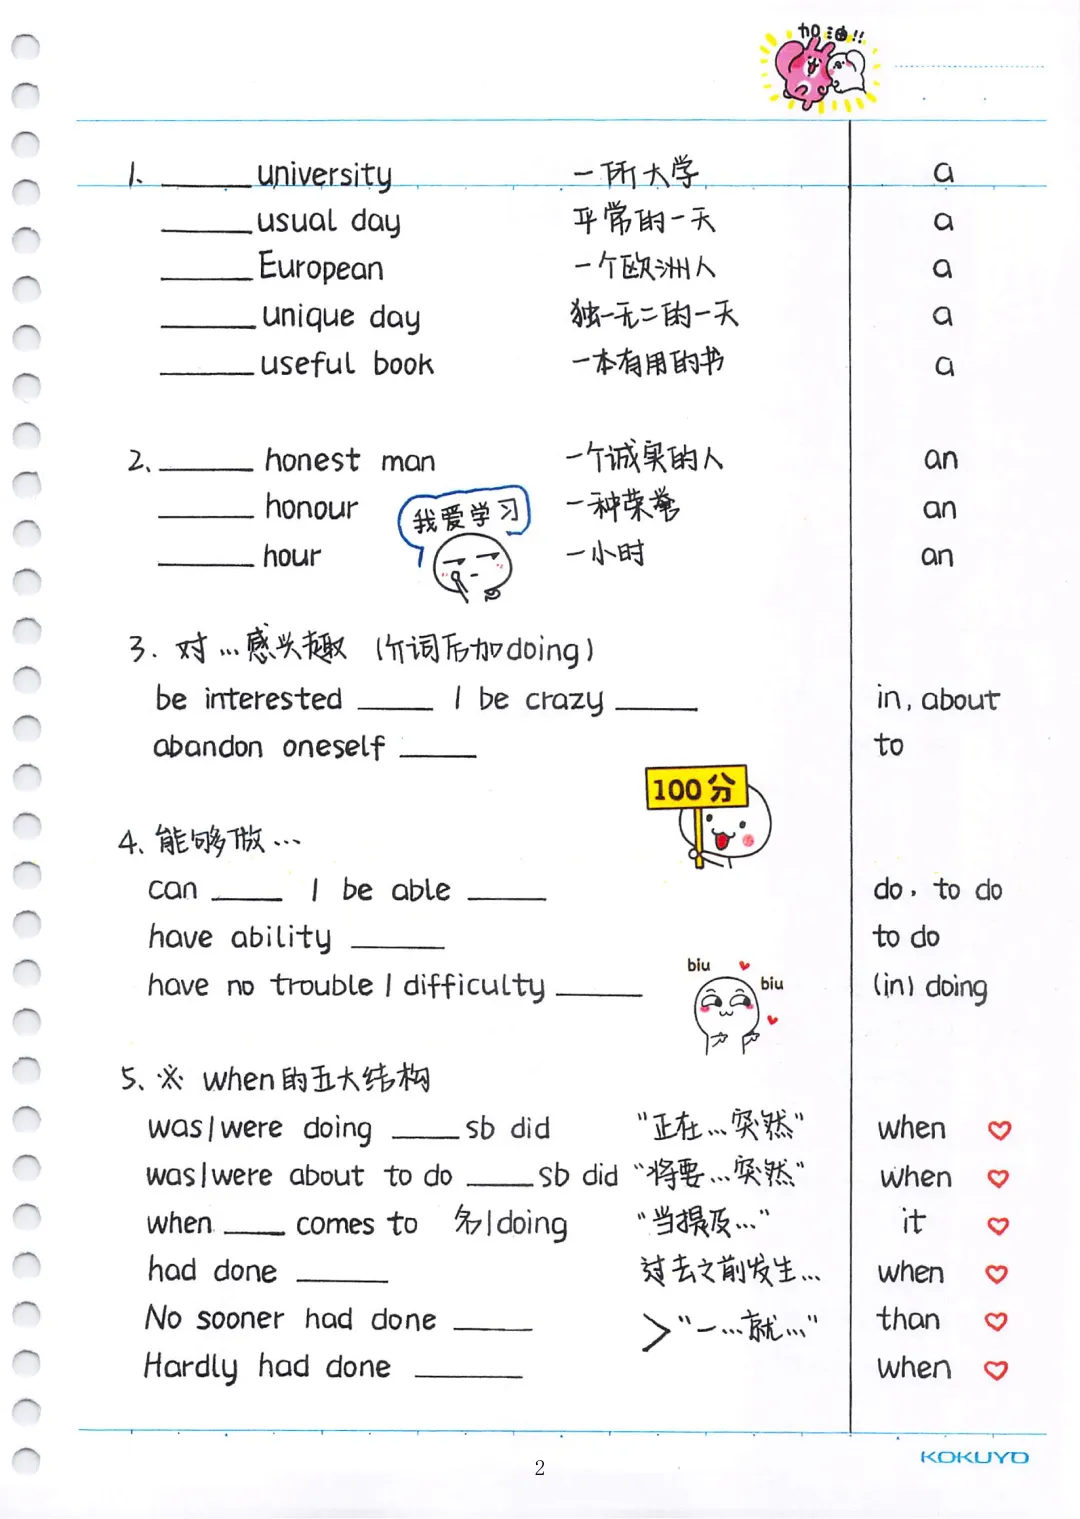 加油!!
1. ______ university 一所大学 a
______ usual day 平常的一天 a
______ European 一个欧洲人 a
______ unique day 独一无二的一天 a
______ useful book 一本有用的书 a
2、______ honest man 一个诚实的人 an
______ honour 一种荣誉 an
我爱学习
______ hour 一小时 an
3. 对…感兴趣 (介词后加doing)
be interested _____ / be crazy _____ in, about
abandon oneself _____ to
100分
4、能够做…
can _____ / be able _____ do, to do
have ability _____ to do
have no trouble / difficulty _____ (in) doing
biu biu
5、※ when的五大结构
was/were doing _____ sb did "正在…突然" when ♡
was/were about to do _____ sb did "将要…突然" when ♡
when _____ comes to 名/doing "当提及…" it ♡
had done _____ 过去之前发生… when ♡
No sooner had done _____ >"一…就…" than ♡
Hardly had done _____ when ♡
KOKUYO
2